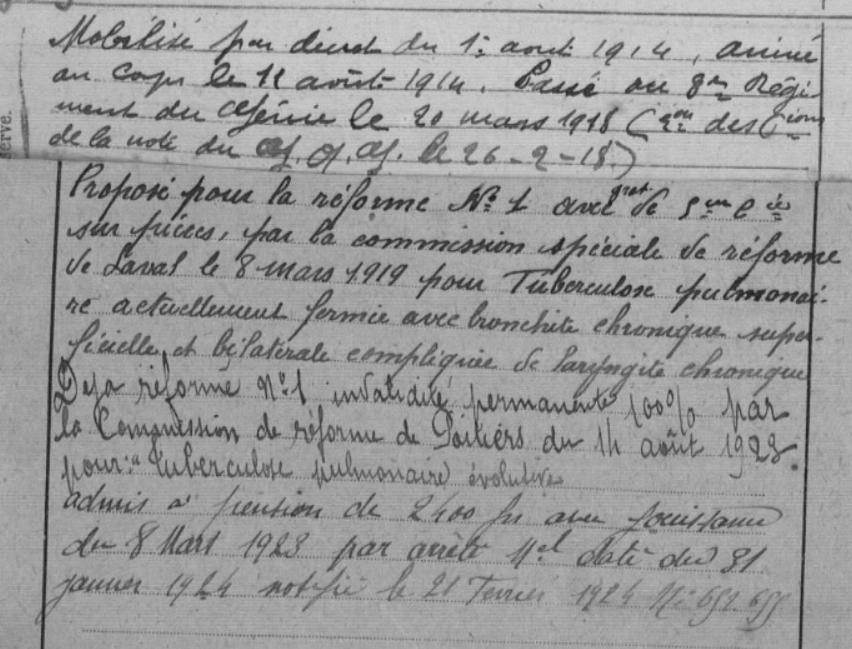 Mobilisé par décret du 1er aout 1914, arrivé
au corps le 11 août 1914. Passé au 8me Régi-
ment du Génie le 20 mars 1918 (
de la note du G. Q. G. le 26-2-18)
Proposé pour la réforme No 1 avec grat. de 5me cie
sur pièces, par la commission spéciale de réforme
de Laval le 8 mars 1919 pour Tuberculose pulmonai-
re actuellement fermée avec bronchite chronique super-
ficielle et bilatérale compliquée de laryngite chronique
Déja réformé No 1 invalidité permanente 100% par
la Commission de réforme de Poitiers du 14 août 1923
pour: "tuberculose pulmonaire évolutive
admis a pension de 2400 frs avec jouissance
du 8 Mars 1923 par arrêté Mel daté du 31
janvier 1924 notifié le 21 Fevrier 1924 No
serve.